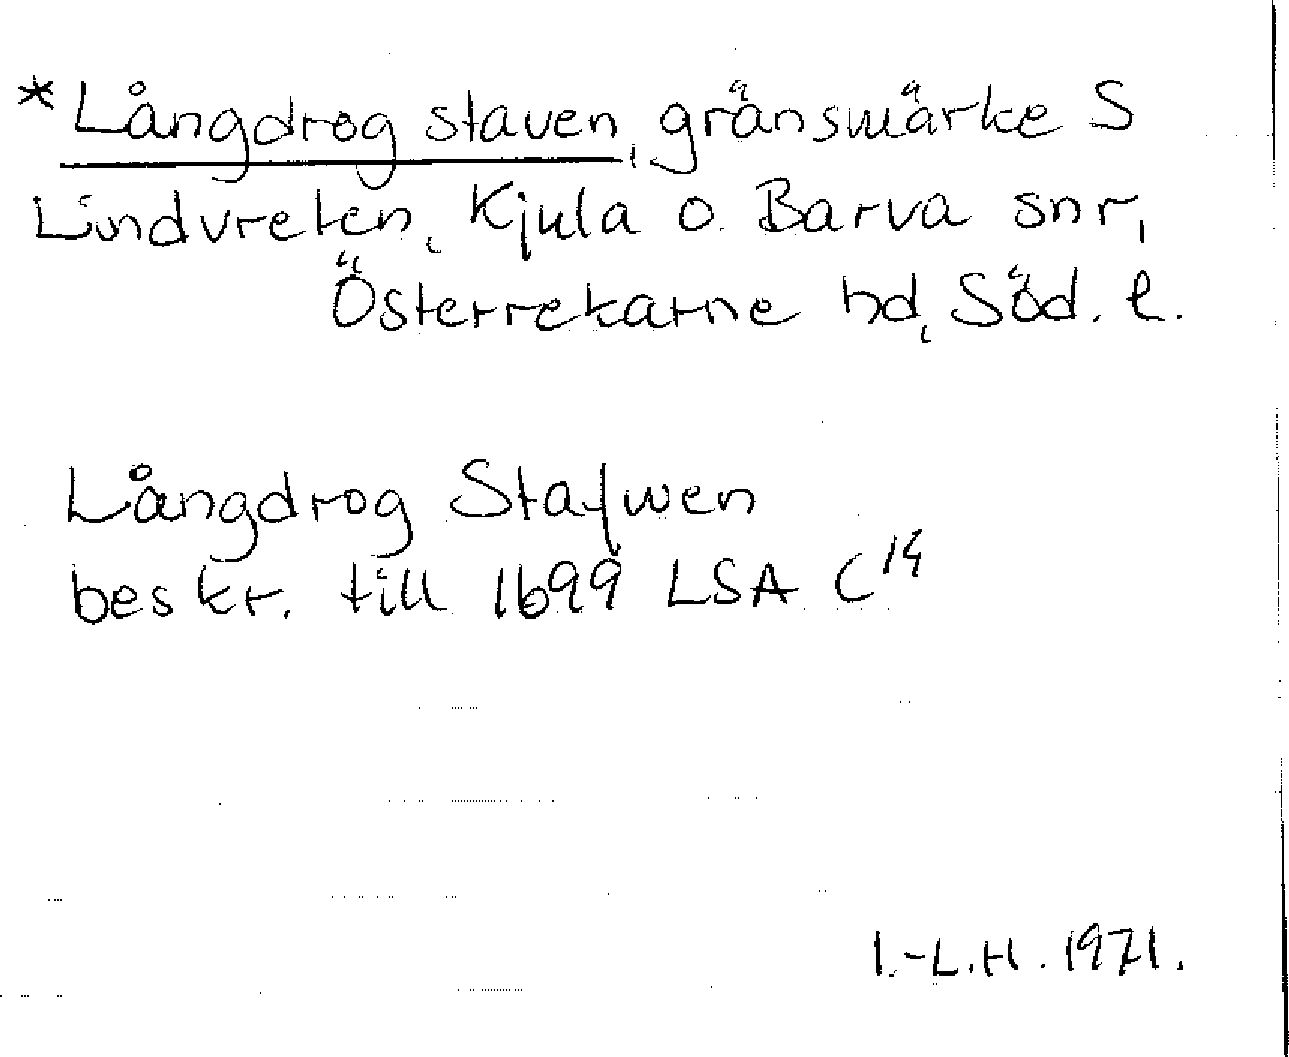 *Långdrog staven, gränsmärke S
Lindvreten, Kjula o. Barva snr,
Österrekarne hd, Söd. l.
Långdrog Stafwen
beskr. till 1699 LSA C¹⁴
I.-L.H. 1971.